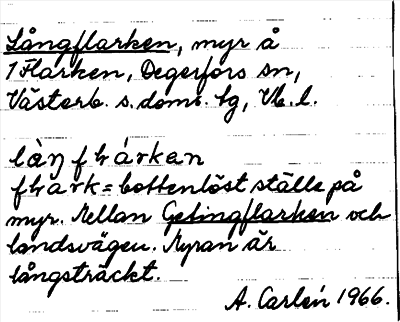 Långflarken, myr å
1 Flarken, Degerfors sn,
Västerb. s. doms. tg, Vb. l.
làŋ fɫárkan
fɫark = bottenlöst ställe på
myr. Mellan Getingflarken och
landsvägen. Myran är
långsträckt.
A. Carlén 1966.